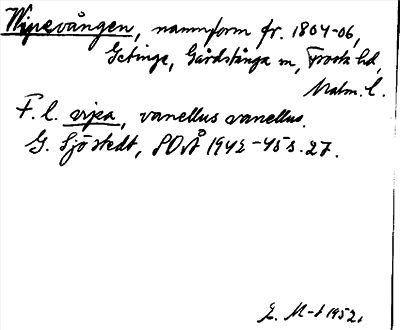 Wipevången, namnform fr. 1804-06,
Getinge, Gårdstånga sn, Frosta hd,
Malm. l.
F. l. vipa, vanellus vanellus.
G. Sjöstedt, SOÅ 1942-45 s. 27.
E. M-t 1952.